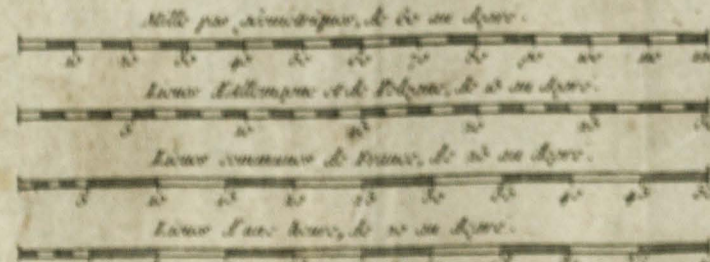 Mille pas géometriques, de 60 au degré.
10 20 30 40 50 60 70 80 90 100 110
Lieues d'Allemagne et de Pologne, de 15 au degré.
5 10 20
Lieues communes de France, de 25 au degré.
5 10 15 20 25 30 35 40 45 50
Lieues d'une heure, de 20 au degré.